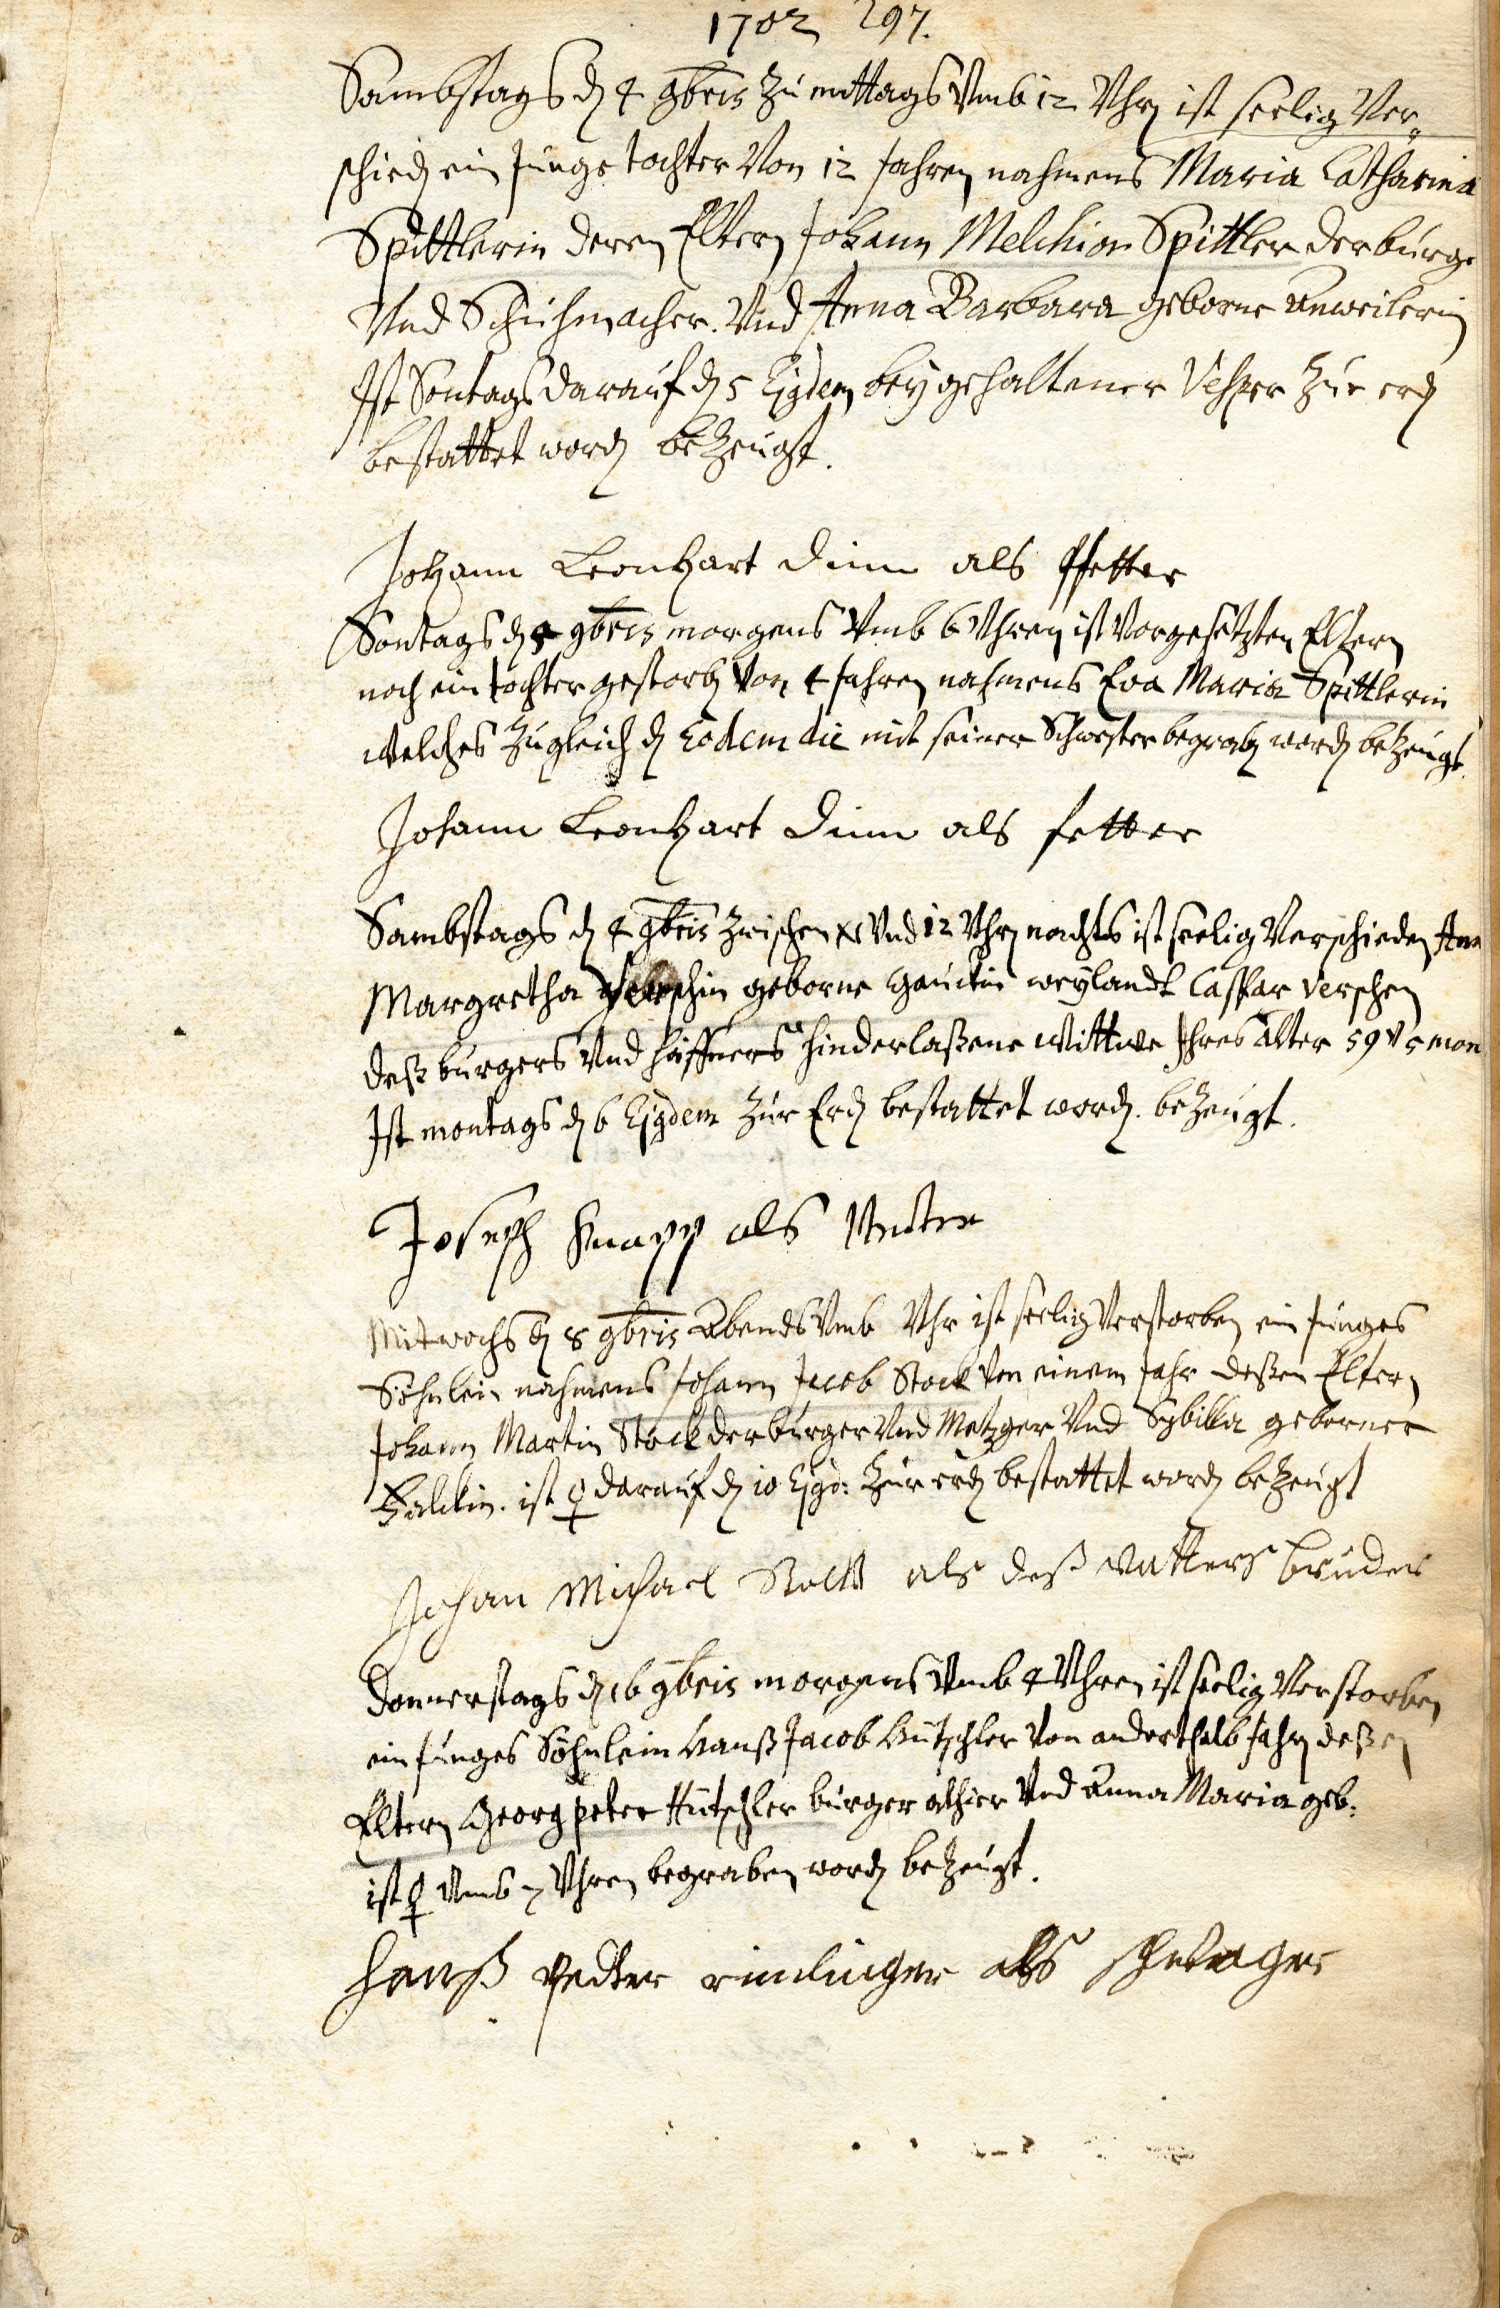 1702 297.
Sambstags dẽ 4 9bris zu mittags Vmb 12 Vhrẽ ist seelig Ver„
schiedẽ ein Junge tochter Von 12 Jahren nahmens Maria Catharina
Spittlerin deren Eltern Johann Melchior Spittler der burge
Vnd Schuhmacher. Vnd Anna Barbara geborne Anweilerin
Ist Sontags darauf dẽ 5 Ejsdem bey gehaltener Vesper zur erdẽ
bestattet wordẽ bezeugt.
Johann Leonhart Dinn als Pfetter
Sontags dẽ 5 9bris morgens Vmb 6 Vhren ist Vorgesetzten Eltern
noch ein tochter gestorbẽ Von 4 Jahren nahmens Eva Maria Spittlerin
welches zugleich dẽ Eodem die mit seiner Schwester begrabẽ wordẽ bezeugt.
Johann Leonhart Dinn als fetter
Sambstags dẽ 4 9bris zwischen Vnd 12 Vhrẽ nachts ist seelig Verschieden Ann
Margretha geborne Gauckin weylandt Caspar Verschen
deß burgers Vnd haffners hinderlaßene Wittwe Ihres alter 59 V 5 mon
Ist montags dẽ 6 Ejsdem zur Erdẽ bestattet wordẽ. bezeugt.
Joseph Knapp als
Mitwochs dẽ 8 9bris Abends Vmb Vhr ist seelig Verstorben ein Junges
Söhnlein nahmens Johann Jacob Stock Von einem Jahr deßen Eltern
Johann Martin Stock der burger Vnd Metzger Vnd Sybilla geborner
ist ♀ darauf dẽ 10 Ejsd: zur erdẽ bestattet wordẽ bezeugt
Johan Michael Stock als deß Vatters bruder
Donnerstags dẽ 16 9bris morgens Vmb 4 Vhren ist seelig Verstorben
ein Junges Söhnlein Hanß Jacob Hütschler Von anderthalb Jahrẽ deßen
Eltern Georg peter Hütschler burger alhier Vnd Anna Maria geb:
ist ♀ Vmb 7 Vhren begraben wordẽ bezeugt.
Hanß Pedter rimlinger als schwager